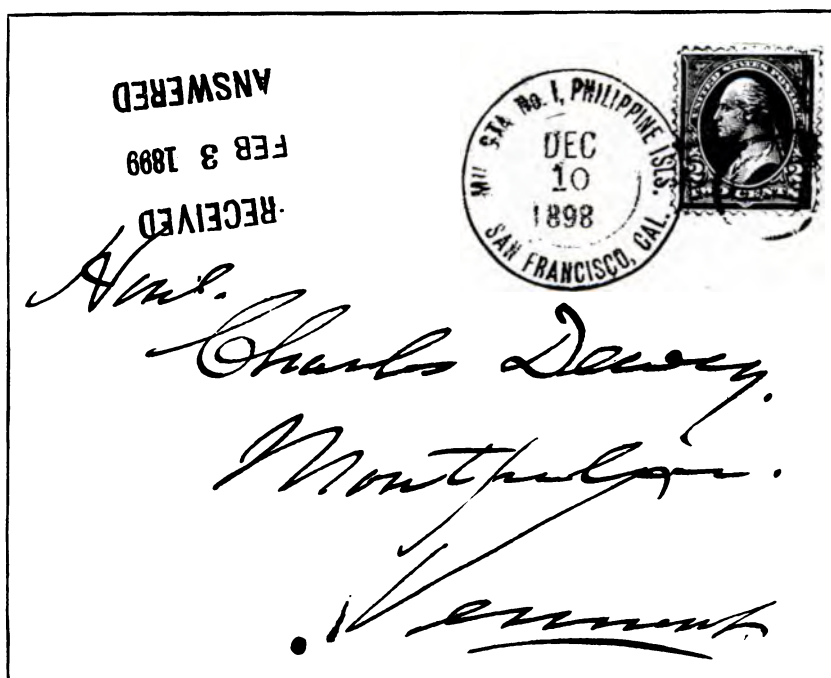 ANSWERED
FEB 3 1899
RECEIVED
MIL. STA. No. 1, PHILIPPINE ISLS.
DEC
10
1898
SAN FRANCISCO, CAL.
UNITED STATES POSTAGE
CENTS
Hon.
Charles Dewey.
Montpelier.
Vermont.